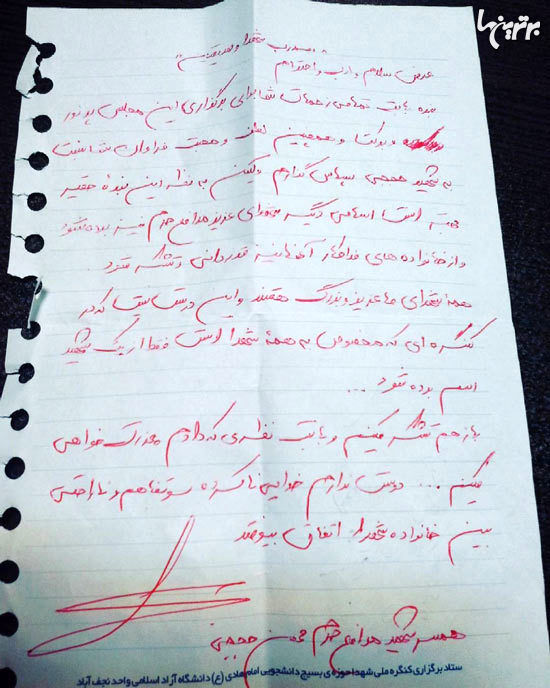 برترین‌ها
" بسم رب شهدا و صدیقین "
عرض سلام و ادب و احترام
بنده بابت تمامی زحمات شما برای برگزاری این مجلس پر نور
و برکت و همچنین لطف و محبت فراوان شما نسبت
به شهید حججی سپاس گذارم ولیکن به نظر این بندهٔ حقیر
بهتر است اسامی دیگر شهدای عزیز مدافع حرم نیز برده شود
و از خانواده های فداکار آنها نیز قدردانی و تشکر شود
همهٔ شهدای ما عزیز و بزرگ هستند و این درست نیست که در
کنگره ای که مخصوص به همهٔ شهدا است فقط از یک شهید
اسم برده شود ...
باز هم تشکر میکنم و بابت نظری که دادم معذرت خواهی
میکنم ... دوست ندارم خدایی ناکرده سوتفاهم و ناراحتی
بین خانواده شهدا اتفاق بیوفتد
همسر شهید مدافع حرم محسن حججی
ستاد برگزاری کنگره ملی شهدا حوزه‌ی بسیج دانشجویی امام هادی (ع) دانشگاه آزاد اسلامی واحد نجف آباد